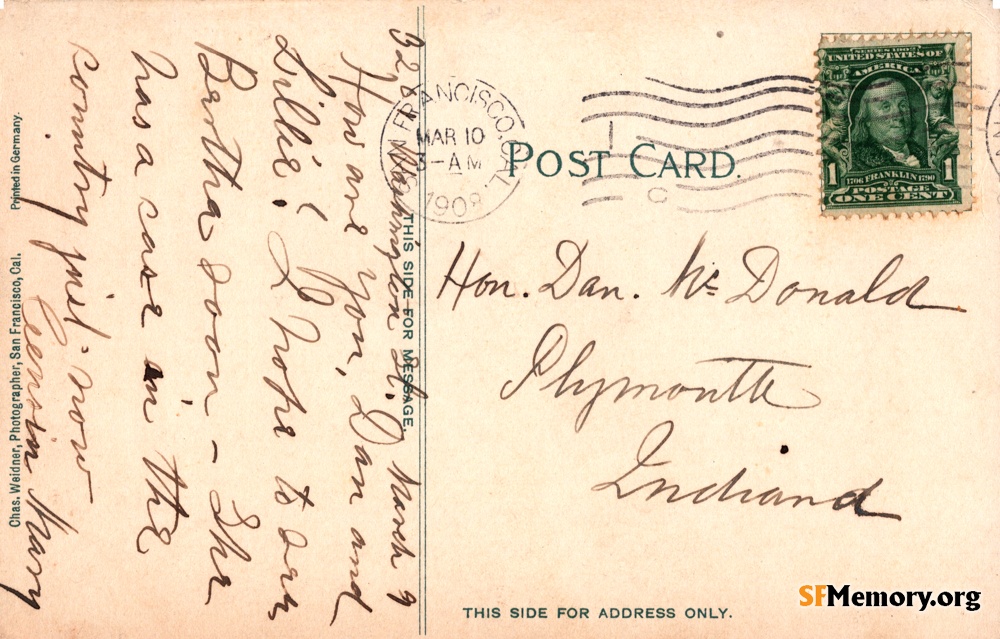 POST CARD.
SAN FRANCISCO, CAL.
MAR 10
3-AM
1908
SERIES 1902
UNITED STATES OF
AMERICA
1 1
1706 FRANKLIN 1790
POSTAGE
ONE CENT
Hon. Dan. Mc Donald
Plymouth
Indiana
THIS SIDE FOR ADDRESS ONLY.
THIS SIDE FOR MESSAGE.
Washington St. March 9
How are you, Dan and
Lillie? I hope to see
Brotha soon - She
has a case in the
country just now
Cousin Mary
Chas. Weidner, Photographer, San Francisco, Cal. Printed in Germany.
SFMemory.org